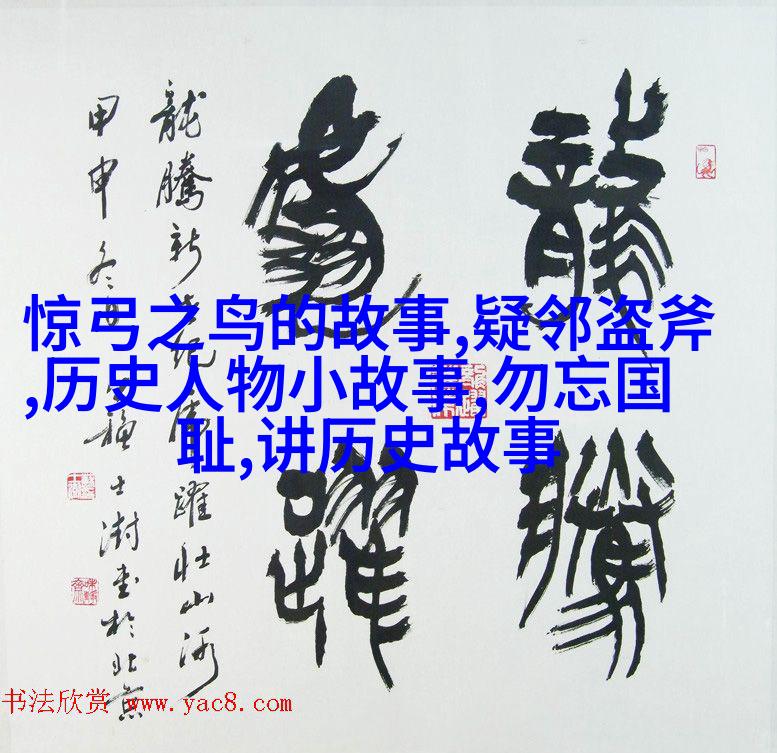 惊弓之鸟的故事,疑邻盗斧
,历史人物小故事,勿忘国
耻,讲历史故事
龍騰
虎躍
龍騰新世纪虎躍壮山河
甲申冬 士澍书於北京
书法欣赏 www.yac8.com